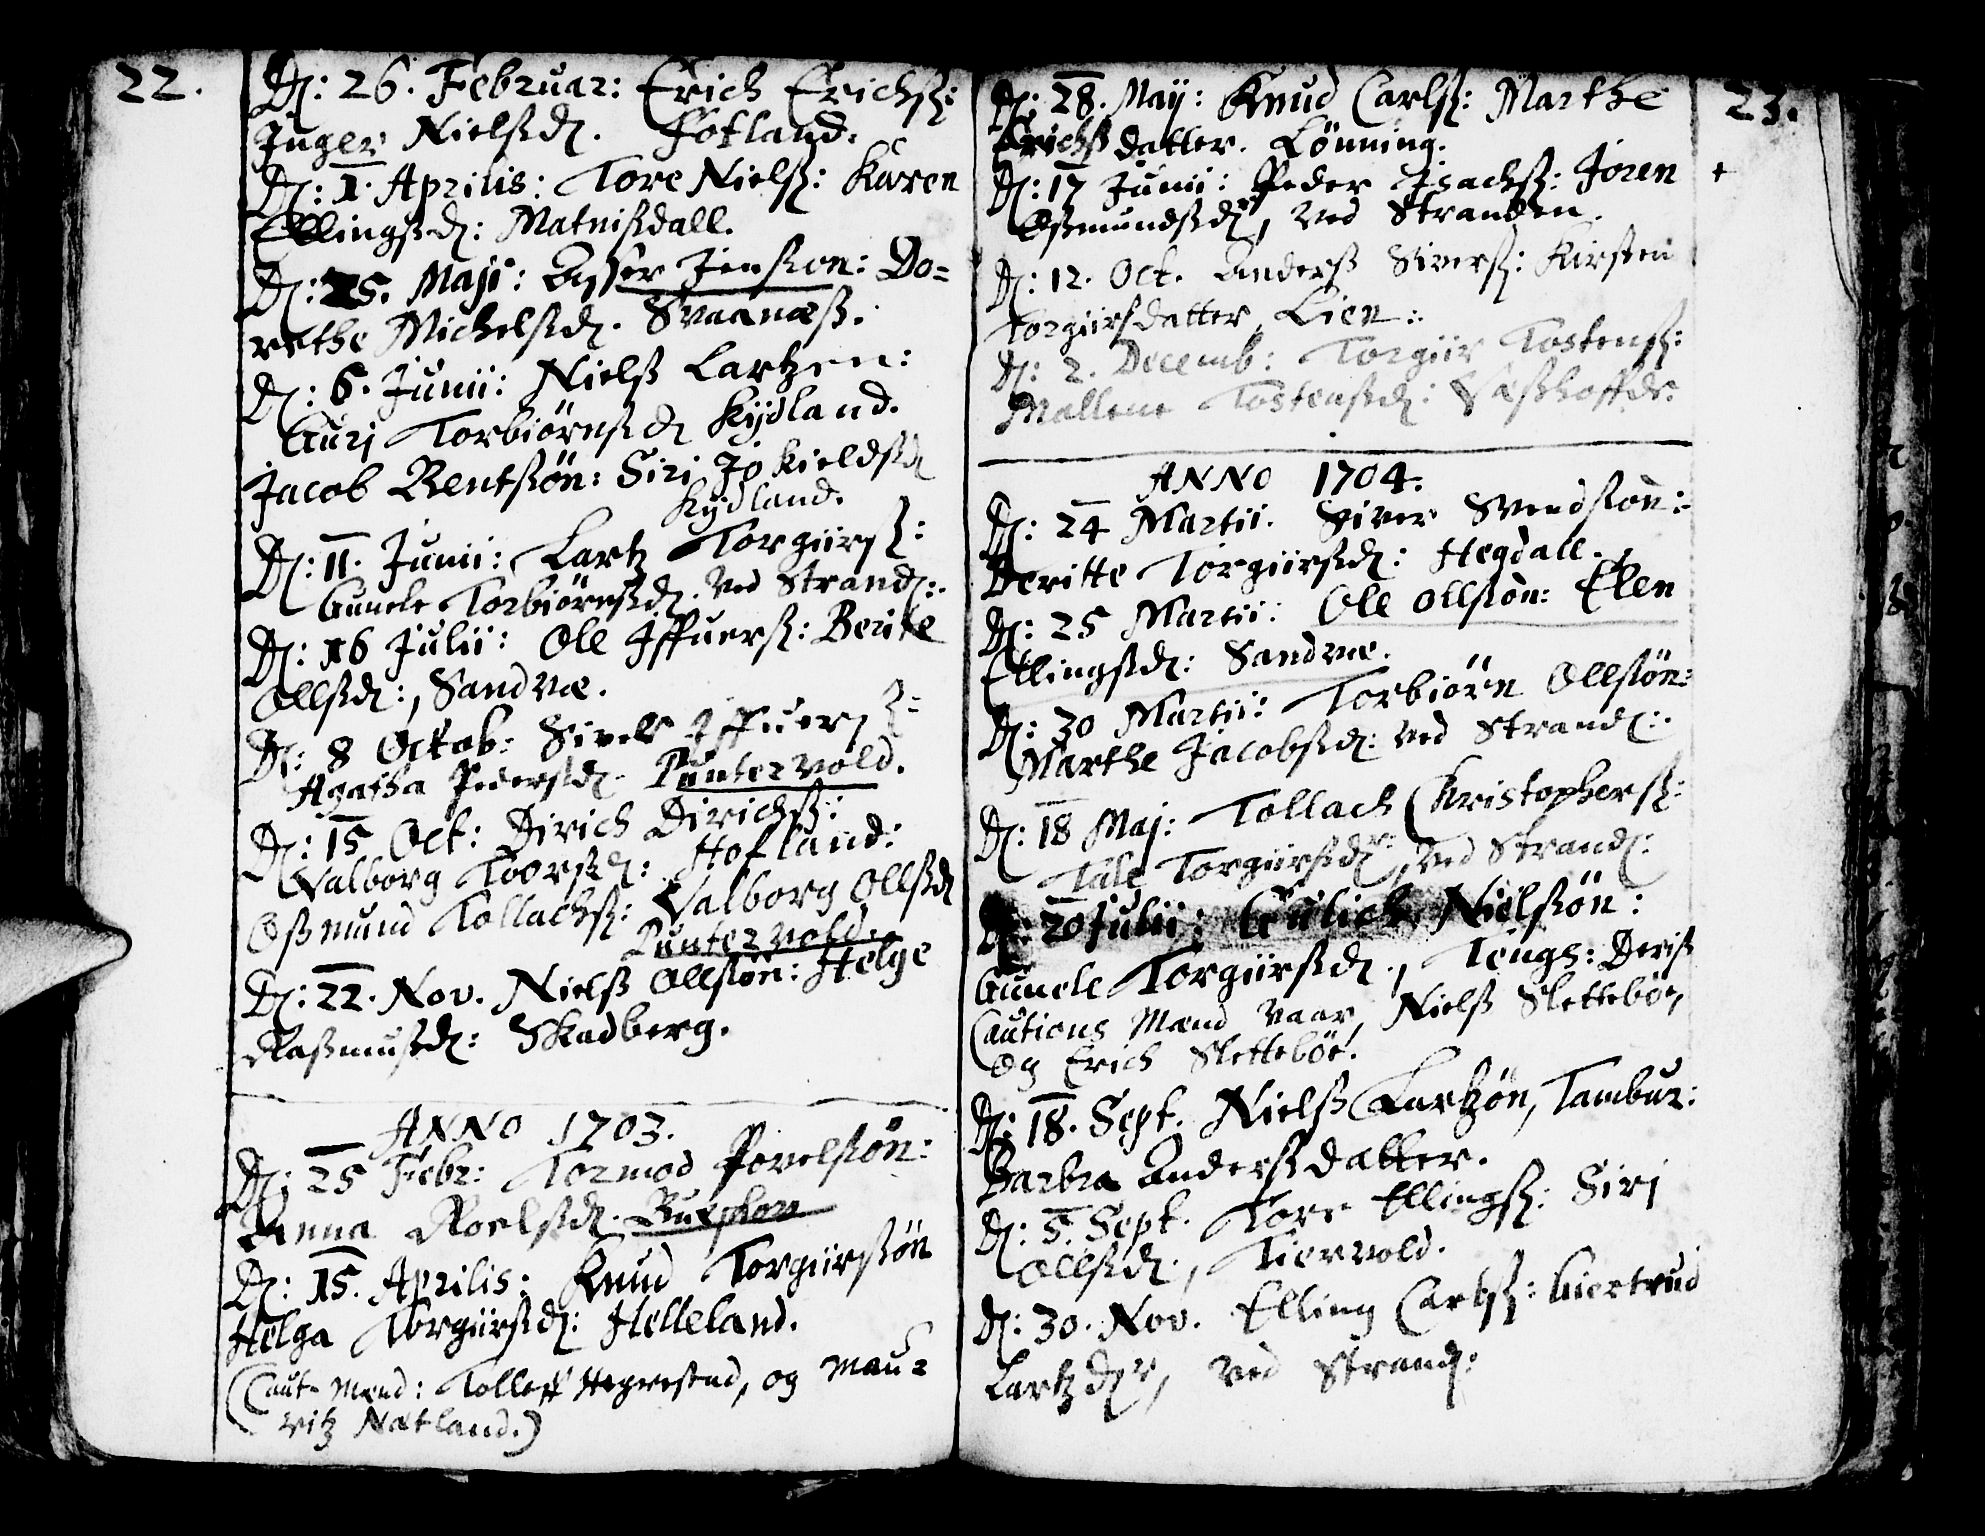 22.
D: 26. Februar: Erich Erichß:
Inger Nielsßd. Fotland:
D: 1. Aprilis: Tore Nielß: Karen
Ellingsßd: Matnisdall.
D: 25. Maji: Asser Jensson: Do=
rethe Michelsßd. Svaanæß.
D: 6. Junii: Nielß Lartzen:
Guri Torbiørnsßd Kydland.
Jacob Bentsøn: Siri Jokieldsßd
Kydland.
D: 11. Junii: Lartz Torgiirsß:
Gunele Torbiørnsßd. Ved Strand:.
D: 16 Julii: Ole Iffuersß: Berite
Ollsßd:, Sandvæ.
D: 8 Octob: Siver Iffuersß:
Agatha Pedersßd. Puntervold.
D: 15 Oct: Dirich Dirichsß:
Valborg Toorsßd: Hofland:
Oßmund Tollachsß: Valborg Ollsßd
Puntervold.
D: 22. Nov. Nielß Ollsøn: Helge
Raßmusßd: Skadberg.
ANNO 1703.
D: 25 Febr: Tormod Povelsøn:
Anna Roelsßd.
D: 15. Aprilis: Knud Torgiirsøn
Helga Torgiirsßd: Helleland.
(Caut= Mænd: Tolleff Hegrestad, og Mau=
ritz Nætland.)
23.
D: 28. Maij: Knud Carlsß: Marthe
Erichsß datter. Lønning.
D: 17 Junii: Peder Isachsß: Joren +
Oßmundsßdr, Ved Stranden.
D: 12. Oct. Anderß Siversß: Kirsten
Torgiirsdatter, Lien:.
D: 2. Decemb: Torgiir Tostensß:
Mallene Tostensßd:
ANNO 1704.
D: 24 Martii. Siver Svendsøn:
Beritte Torgiirsßd: Hegdall.
D: 25 Martii: Ole Ollsøn: Elen
Ellingsßd: Sandvæ.
D: 30 Martii: Torbiørn Ollsøn:
Marthe Jacobsßd: Ved Strand:.
D: 18 Maj: Tollach Christophersß:
Tale Torgiirsßdr:, Ved Strand:
D: 20 Julii: Gulich Nielsøn:
Gunele Torgiirsßd., Tengs: Deriß
Cautions Mænd Vaar, Nielß Slettebøe,
og Erich Slettebøe.
D: 18. Sept. Nielß Lartzøn, Tambur:
Barbra Anderß datter.
D: 5. Sept. Tore Ellingsß: Siri
Ollsßd., Tiervold.
D: 30. Nov. Elling Carlsß: Giertrud
Lartz dr, Ved Strand: